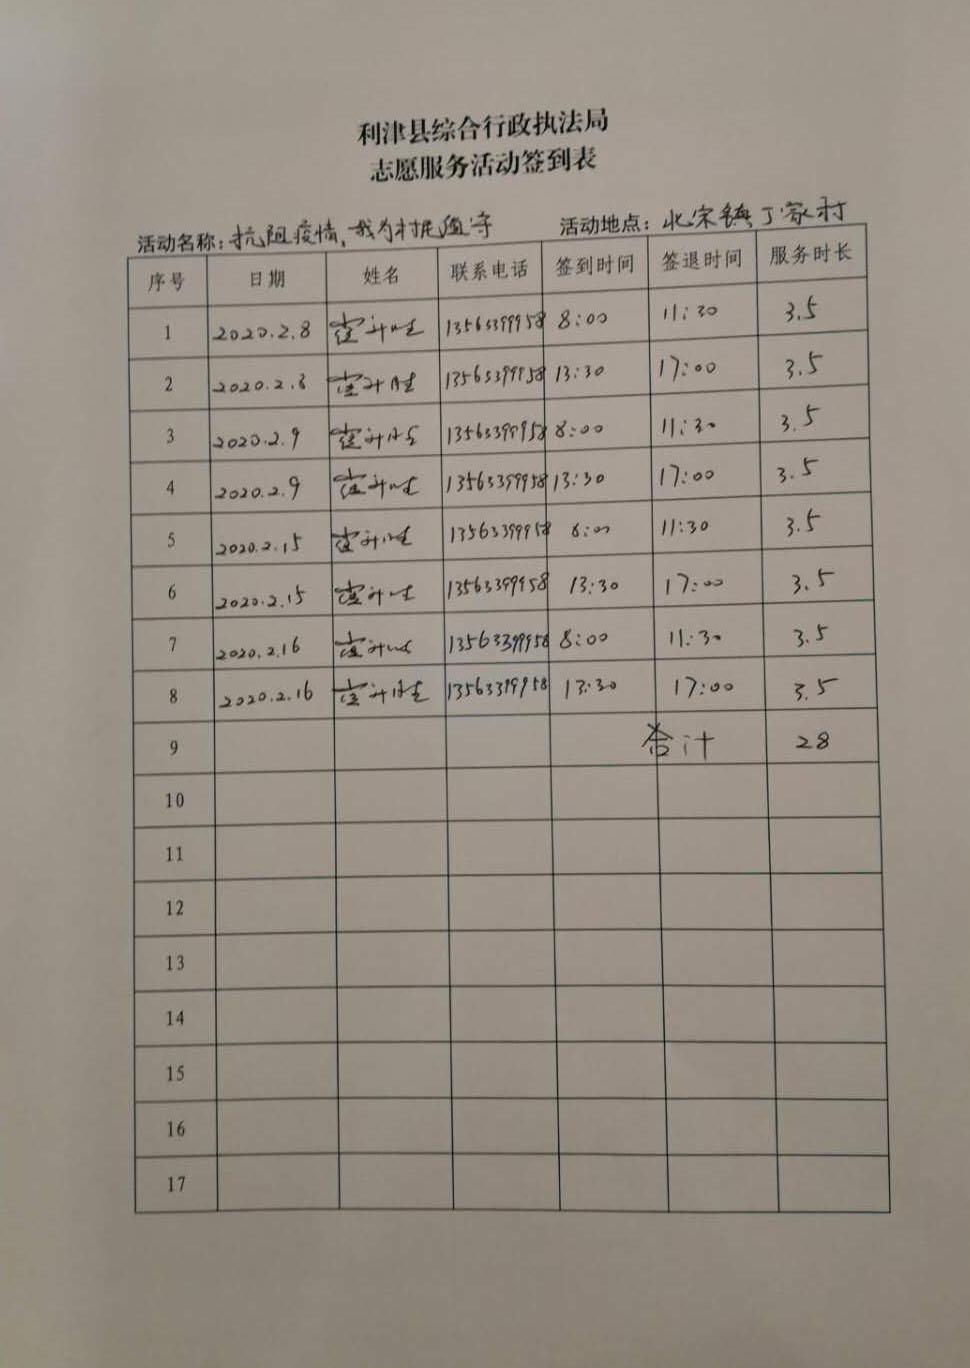 利津县综合行政执法局
志愿服务活动签到表
活动名称：抗阻疫情，我为村民值守 活动地点：北宋镇丁家村
序号 日期 姓名 联系电话 签到时间 签退时间 服务时长
1 2020.2.8 13563399958 8:00 11:30 3.5
2 2020.2.8 13563399958 13:30 17:00 3.5
3 2020.2.9 13563399958 8:00 11:30 3.5
4 2020.2.9 13563399958 13:30 17:00 3.5
5 2020.2.15 13563399958 8:00 11:30 3.5
6 2020.2.15 13563399958 13:30 17:00 3.5
7 2020.2.16 13563399958 8:00 11:30 3.5
8 2020.2.16 13563399958 13:30 17:00 3.5
9 合计 28
10
11
12
13
14
15
16
17